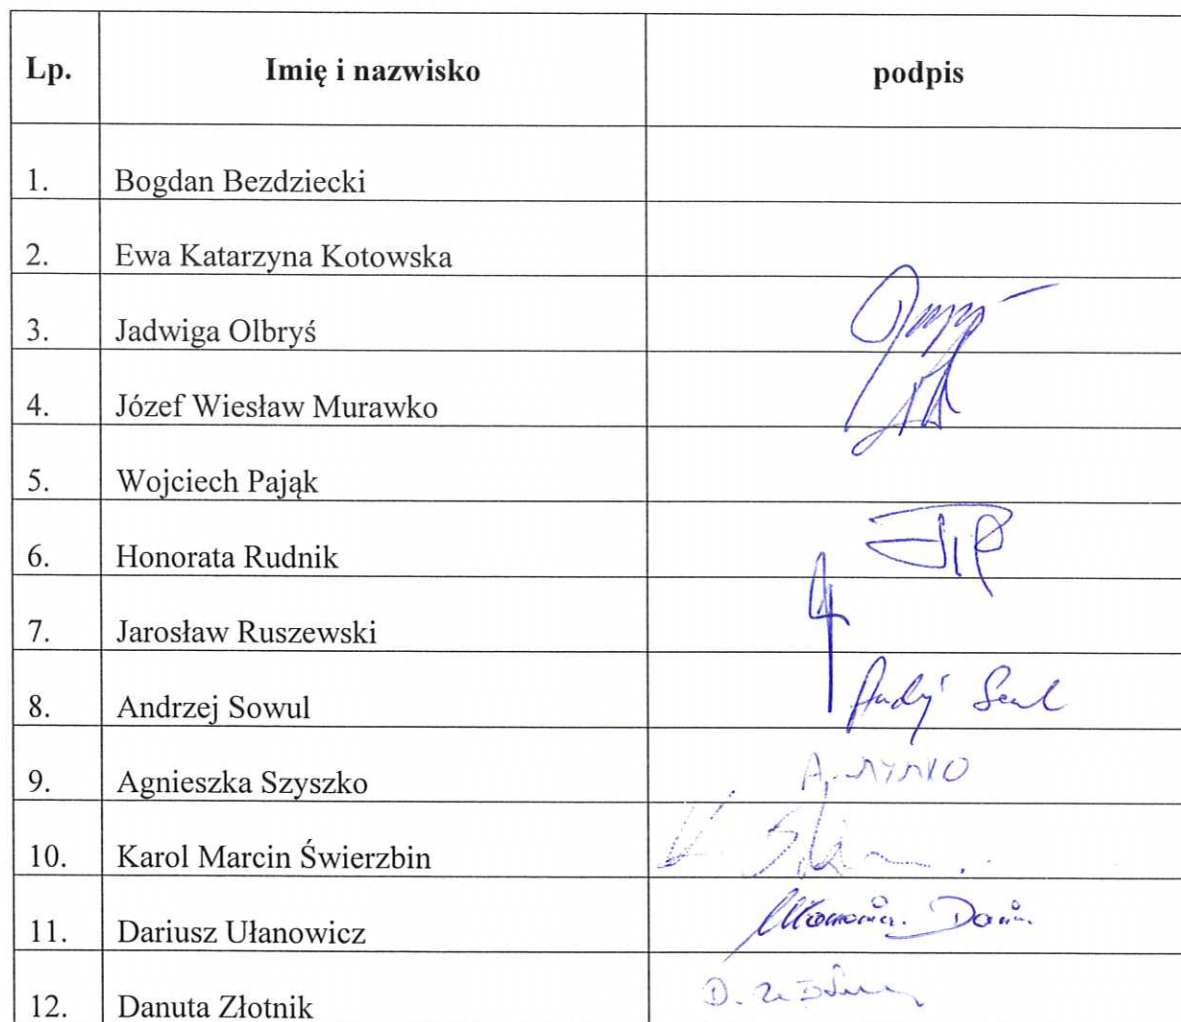 Lp. Imię i nazwisko podpis
1. Bogdan Bezdziecki
2. Ewa Katarzyna Kotowska
3. Jadwiga Olbryś
4. Józef Wiesław Murawko
5. Wojciech Pająk
6. Honorata Rudnik
7. Jarosław Ruszewski
8. Andrzej Sowul
9. Agnieszka Szyszko
10. Karol Marcin Świerzbin
11. Dariusz Ułanowicz
12. Danuta Złotnik